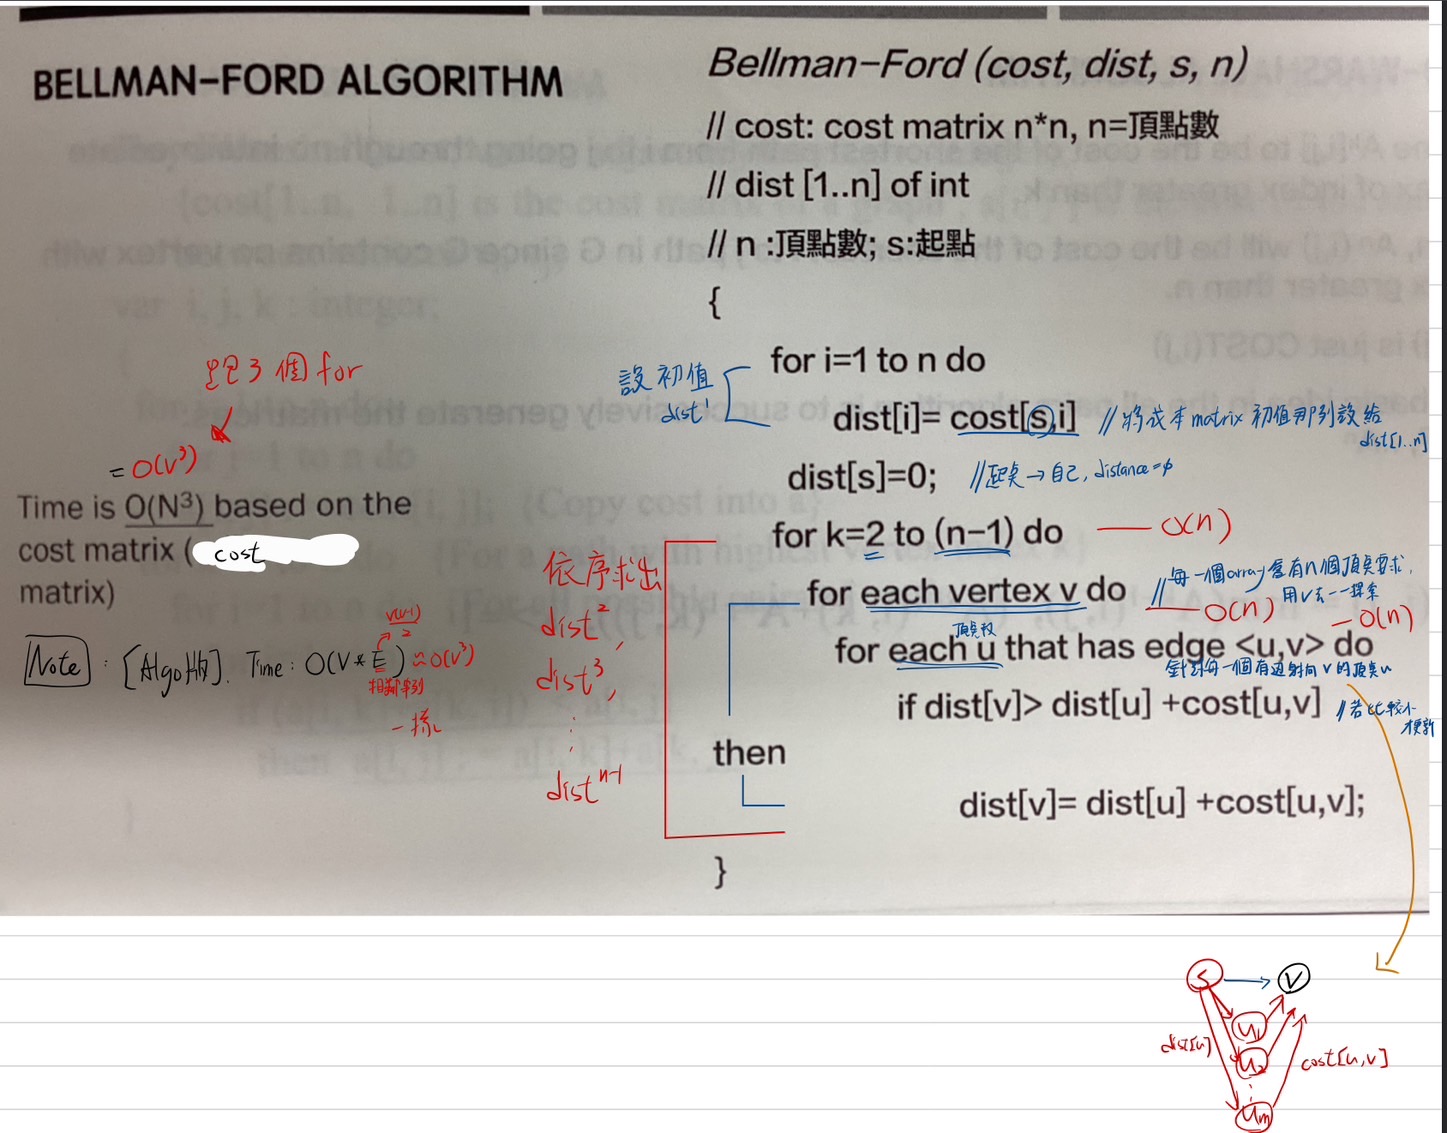 BELLMAN–FORD ALGORITHM
Bellman–Ford (cost, dist, s, n)
// cost: cost matrix n*n, n=頂點數
// dist [1..n] of int
// n :頂點數; s:起點
{
for i=1 to n do
設初值
dist¹
dist[i]= cost[s,i]
//將成本matrix 初值那列設給
dist[1..n]
dist[s]=0;
//起点→自己, distance=φ
for k=2 to (n–1) do
O(n)
for each vertex v do
//每一個array會有n個頂点要求,
用V去一一探索
O(n)
O(n)
頂点數
for each u that has edge <u,v> do
針對每一個有邊射向 v 的頂点u
if dist[v]> dist[u] +cost[u,v]
//若比較小
才更新
then
dist[v]= dist[u] +cost[u,v];
}
依序求出
dist²,
dist³,
⋮
distⁿ⁻¹
跑3個for
= O(V³)
Time is O(N³) based on the
cost matrix ( cost
matrix)
Note : [Algo版]. Time: O(V*E) ≈O(V³)
V(V-1)
2
一樣
S
V
u₁
u₂
⋮
um
dist[u]
cost[u,v]